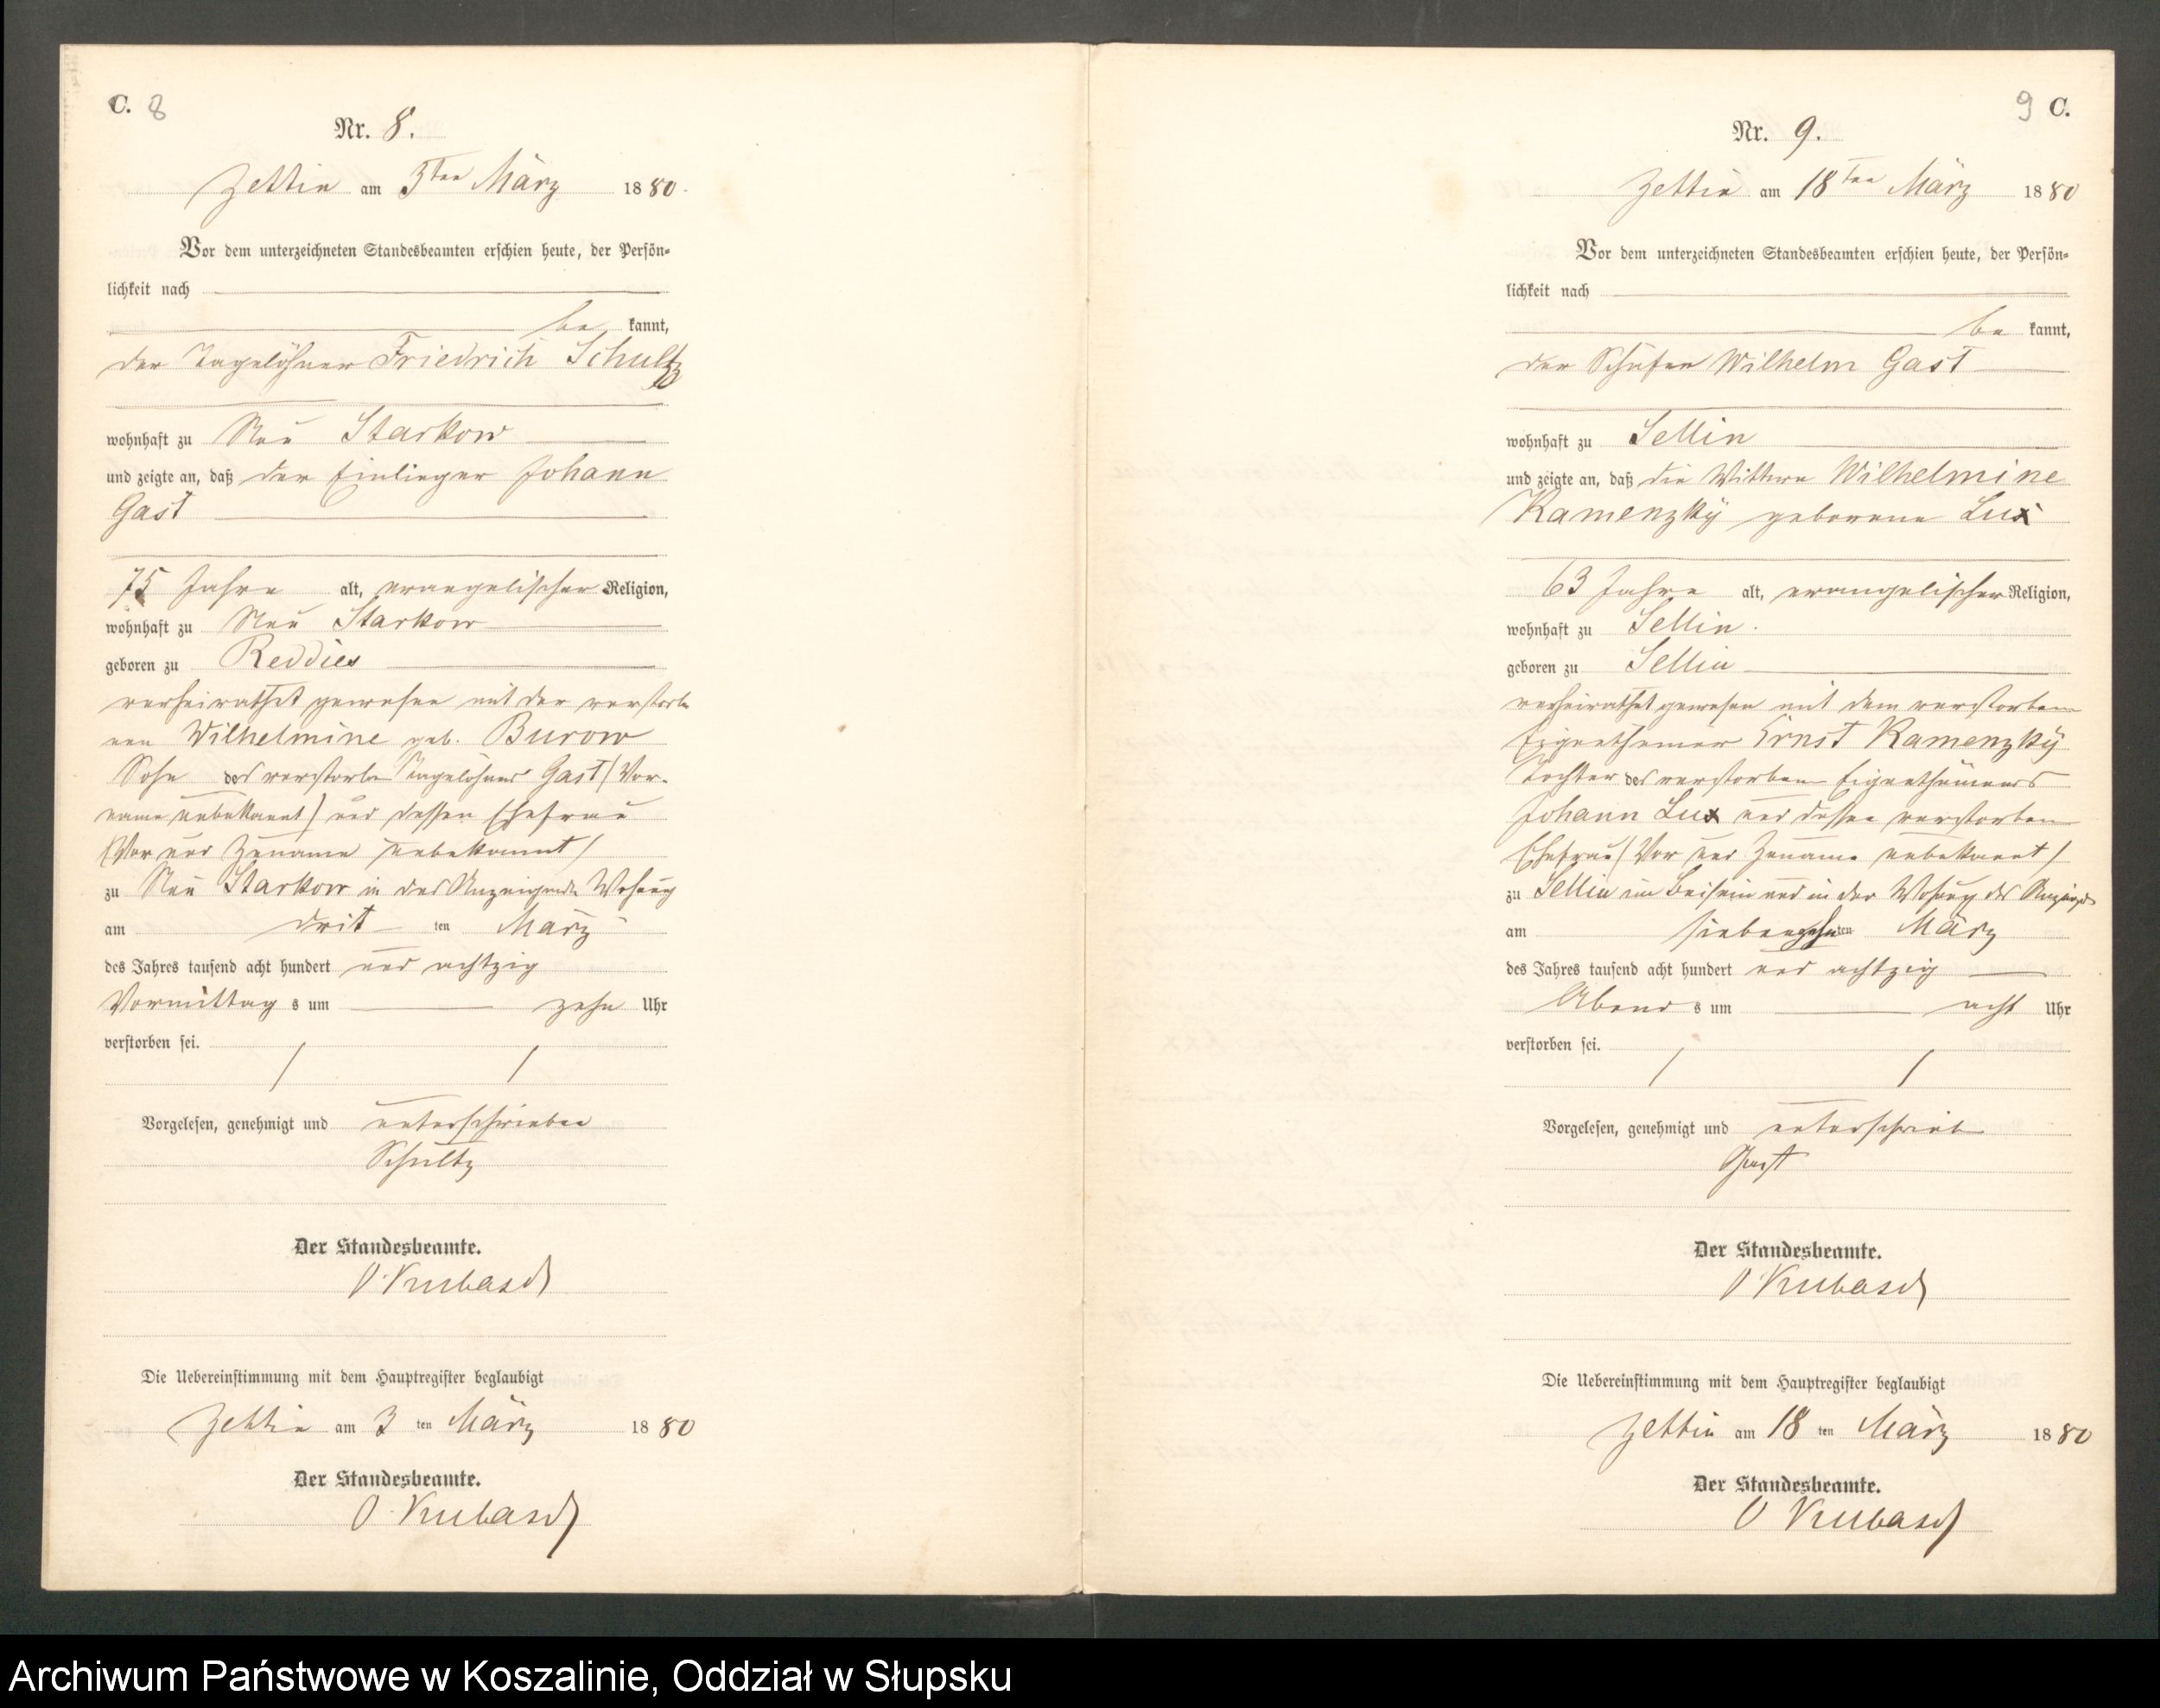 C. 8
Nr. 8.
Zettin am 3ten März 1880.
Vor dem unterzeichneten Standesbeamten erschien heute, der Persön-
lichkeit nach
be kannt,
der Tagelöhner Friedrich Schultz
wohnhaft zu Neu Starkow
und zeigte an, daß der Einlieger Johann
Gast
75 Jahre alt, evangelischer Religion,
wohnhaft zu Neu Starkow
geboren zu Reddies
verheirathet gewesen mit der verstorbe
nen Wilhelmine geb. Burow
Sohn des verstorben Tagelöhners Gast (Vor-
name unbekannt) und dessen Ehefrau
(Vor und Zuname unbekannt)
zu Neu Starkow in des Anzeigenden Wohnung
am drit ten März
des Jahres tausend acht hundert und achtzig
Vormittag s um zehn Uhr
verstorben sei.
Vorgelesen, genehmigt und unterschrieben
Schultz
Der Standesbeamte.
O. Kubasch
Die Uebereinstimmung mit dem Hauptregister beglaubigt
Zettin am 3 ten März 1880
Der Standesbeamte.
O. Kubasch
9 C.
Nr. 9.
Zettin am 18ten März 1880
Vor dem unterzeichneten Standesbeamten erschien heute, der Persön-
lichkeit nach
be kannt,
der Schäfer Wilhelm Gast
wohnhaft zu Sellin
und zeigte an, daß die Wittwe Wilhelmine
Kamenzky geborene Lux
63 Jahre alt, evangelischer Religion,
wohnhaft zu Sellin.
geboren zu Sellin
verheirathet gewesen mit dem verstorbenen
Eigenthümer Ernst Kamenzky
Tochter des verstorbenen Eigenthümers
Johann Lux und dessen verstorbenen
Ehefrau (Vor und Zuname unbekannt)
zu Sellin im Beisein und in der Wohnung des
am siebenzehn ten März
des Jahres tausend acht hundert und achtzig
Abend s um acht Uhr
verstorben sei.
Vorgelesen, genehmigt und unterschrieben
Gast
Der Standesbeamte.
O Kubasch
Die Uebereinstimmung mit dem Hauptregister beglaubigt
Zettin am 18 ten März 1880
Der Standesbeamte.
O Kubasch
Archiwum Państwowe w Koszalinie, Oddział w Słupsku